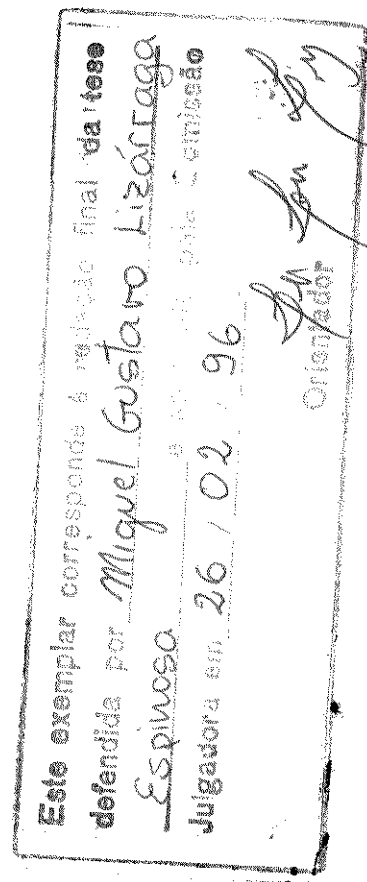 Este exemplar corresponde à redação final da tese
defendida por Miguel Gustavo Lizárraga
Espinosa e pela Comissão
Julgadora em 26 / 02 / 96
Orientador